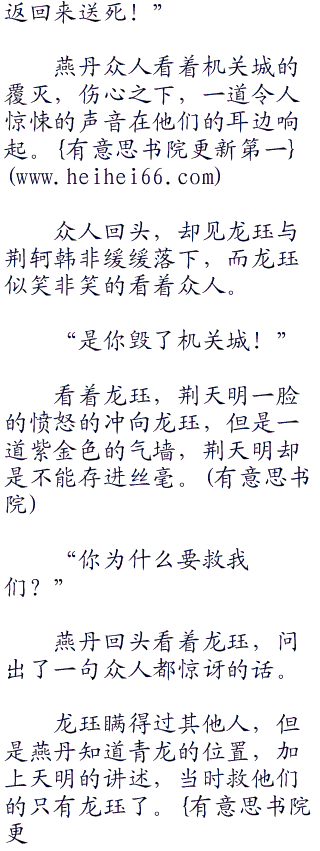 返回来送死！”
燕丹众人看着机关城的
覆灭，伤心之下，一道令人
惊悚的声音在他们的耳边响
起。{有意思书院更新第一}
(www.heihei66.com)
众人回头，却见龙珏与
荆轲韩非缓缓落下，而龙珏
似笑非笑的看着众人。
“是你毁了机关城！”
看着龙珏，荆天明一脸
的愤怒的冲向龙珏，但是一
道紫金色的气墙，荆天明却
是不能存进丝毫。(有意思书
院)
“你为什么要救我
们？”
燕丹回头看着龙珏，问
出了一句众人都惊讶的话。
龙珏瞒得过其他人，但
是燕丹知道青龙的位置，加
上天明的讲述，当时救他们
的只有龙珏了。{有意思书院
更